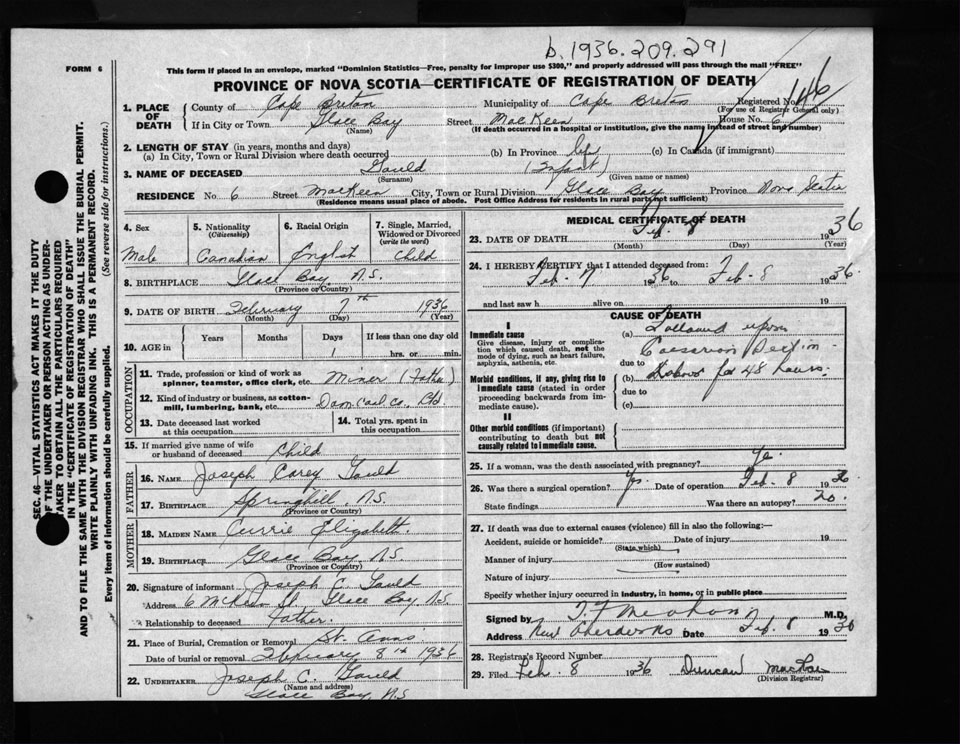 b. 1936. 209. 291
FORM 6
This form if placed in an envelope, marked "Dominion Statistics—Free, penalty for improper use $300," and properly addressed will pass through the mail "FREE"
PROVINCE OF NOVA SCOTIA—CERTIFICATE OF REGISTRATION OF DEATH
SEC. 46—VITAL STATISTICS ACT MAKES IT THE DUTY
OF THE UNDERTAKER OR PERSON ACTING AS UNDER-
TAKER TO OBTAIN ALL THE PARTICULARS REQUIRED
IN THE "CERTIFICATE OF REGISTRATION OF DEATH"
AND TO FILE THE SAME WITH THE DIVISION REGISTRAR WHO SHALL ISSUE THE BURIAL PERMIT.
WRITE PLAINLY WITH UNFADING INK. THIS IS A PERMANENT RECORD.
Every item of information should be carefully supplied. (See reverse side for instructions.)
1. PLACE OF DEATH
County of Cape Breton Municipality of Cape Breton Registered No. 146
(For use of Registrar General only)
If in City or Town Glace Bay Street MacKeen House No. 6
(Name) (If death occurred in a hospital or institution, give the name instead of street and number)
2. LENGTH OF STAY (in years, months and days)
(a) In City, Town or Rural Division where death occurred (b) In Province life (c) In Canada (if immigrant)
3. NAME OF DECEASED Gould (Infant)
(Surname) (Given name or names)
RESIDENCE No. 6 Street MacKeen City, Town or Rural Division Glace Bay Province Nova Scotia
(Residence means usual place of abode. Post Office Address for residents in rural parts not sufficient)
4. Sex
Male
5. Nationality
(Citizenship)
Canadian
6. Racial Origin
English
7. Single, Married,
Widowed or Divorced
(write the word)
Child
8. BIRTHPLACE Glace Bay, N.S.
(Province or Country)
9. DATE OF BIRTH February 7th 1936
(Month) (Day) (Year)
10. AGE in Years Months Days If less than one day old
1 hrs. or min.
OCCUPATION
11. Trade, profession or kind of work as
spinner, teamster, office clerk, etc. Miner (Father)
12. Kind of industry or business, as cotton-
mill, lumbering, bank, etc. Dom Coal Co. Ltd
13. Date deceased last worked
at this occupation
14. Total yrs. spent in
this occupation
15. If married give name of wife
or husband of deceased Child
FATHER
16. NAME Joseph Carey Gould
17. BIRTHPLACE Springhill N.S.
(Province or Country)
MOTHER
18. MAIDEN NAME Currie Elizabeth
19. BIRTHPLACE Glace Bay, N.S
(Province or Country)
20. Signature of informant Joseph C. Gould
Address 6 McKeen St Glace Bay N.S.
Relationship to deceased Father.
21. Place of Burial, Cremation or Removal St. Anns
Date of burial or removal February 8th 1936
22. UNDERTAKER Joseph C. Gould
(Name and address)
Glace Bay, N.S
MEDICAL CERTIFICATE OF DEATH
23. DATE OF DEATH Feb. 8 1936
(Month) (Day) (Year)
24. I HEREBY CERTIFY that I attended deceased from:
Feb. 7 1936 to Feb. 8 1936.
and last saw h alive on 19
CAUSE OF DEATH
I
Immediate cause
Give disease, injury or complica-
tion which caused death, not the
mode of dying, such as heart failure,
asphyxia, asthenia, etc.
(a) Followed upon
Caesarian Section.
due to
Morbid conditions, if any, giving rise to
immediate cause (stated in order
proceeding backwards from im-
mediate cause).
(b) Labour for 48 hours.
due to
(c)
II
Other morbid conditions (if important)
contributing to death but not
causally related to immediate cause.
25. If a woman, was the death associated with pregnancy? Ye.
26. Was there a surgical operation? Yes. Date of operation Feb. 8 1936
State findings Was there an autopsy? No.
27. If death was due to external causes (violence) fill in also the following:—
Accident, suicide or homicide? Date of injury 19
(State which)
Manner of injury
(How sustained)
Nature of injury
Specify whether injury occurred in industry, in home, or in public place
Signed by M.D.
Address New Aberdeen NS Date Feb. 8 1936
28. Registrar's Record Number
29. Filed Feb. 8 1936 Duncan
(Division Registrar)